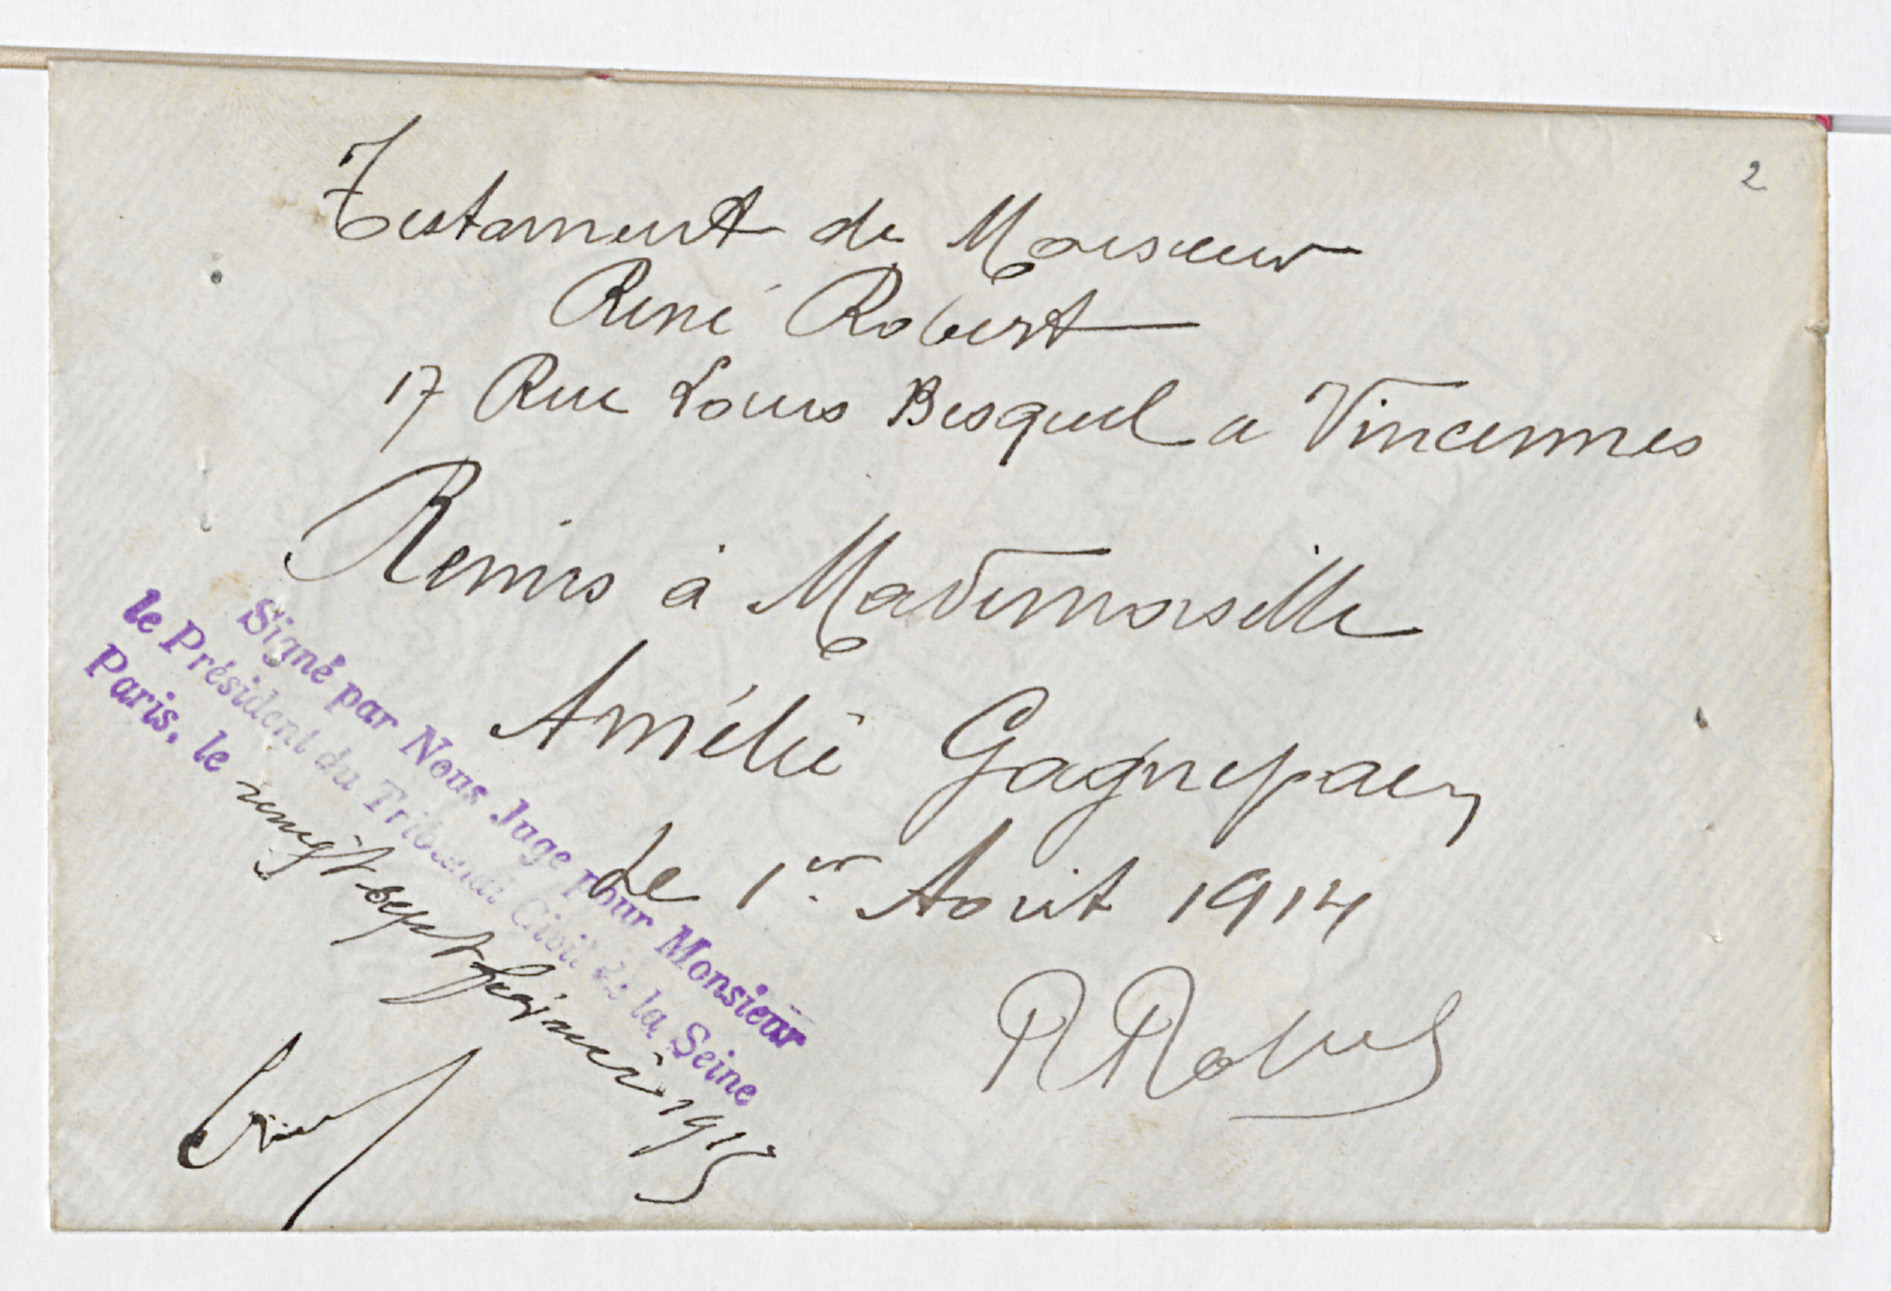 2
Testament de Monsieur
René Robert
17 Rue Louis Besquel a Vincennes
Remis à Mademoiselle
Amélie Gagnepain
Le 1er Août 1914
R Robert
Signé par Nous Juge pour Monsieur
le Président du Tribunal Civil de la Seine
Paris, le vingt sept Janvier 1915